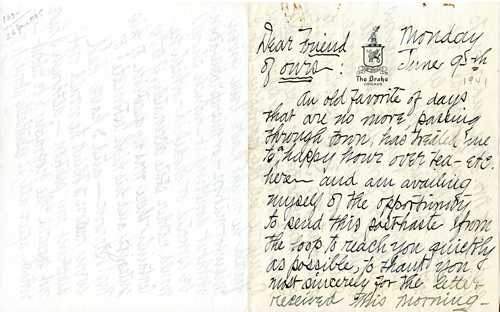 Dear Friend
of ours:
The Drake
CHICAGO
Monday
June 9th
1941
An old favorite of days
that are no more passing
through town, has treated me
to "happy hour over tea - etc.
here - and am availing
myself of the opportunity
to send this posthaste from
the loop to reach you quickly
as possible, to thank you
most sincerely for the letter
received this morning -